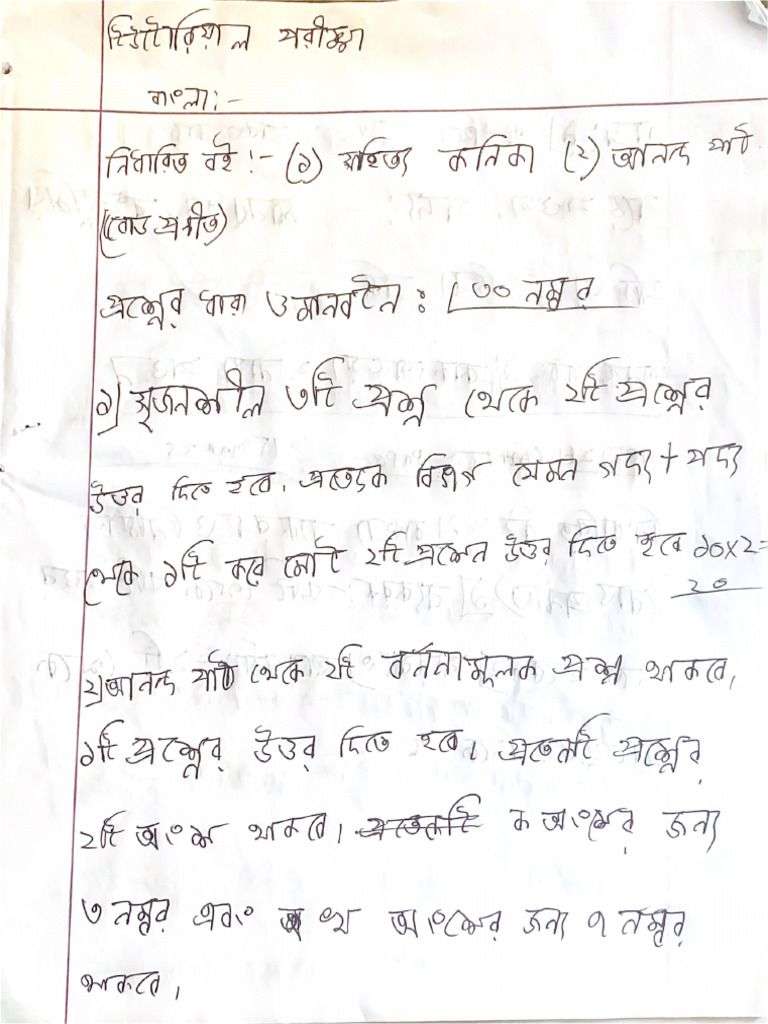 টিউটোরিয়াল পরীক্ষা
বাংলা:-
নির্ধারিত বই:- (১) সাহিত্য কনিকা (২) আনন্দ পাঠ
(বোর্ড প্রণীত)
প্রশ্নের ধারা ও মানবন্টন: ৩০ নম্বর
১) সৃজনশীল ৩টি প্রশ্ন থেকে ২টি প্রশ্নের
উত্তর দিতে হবে। প্রত্যেক বিভাগ যেমন গদ্য + পদ্য
থেকে ১টি করে মোট ২টি প্রশ্নের উত্তর দিতে হবে ১০x২=
২০
২) আনন্দ পাঠ থেকে ২টি বর্ননামূলক প্রশ্ন থাকবে,
১টি প্রশ্নের উত্তর দিতে হবে। প্রতেকটি প্রশ্নের
২টি অংশ থাকবে। প্রতেকটি ক অংশের জন্য
৩ নম্বর এবং খ অংশের জন্য ৭ নম্বর
থাকবে।